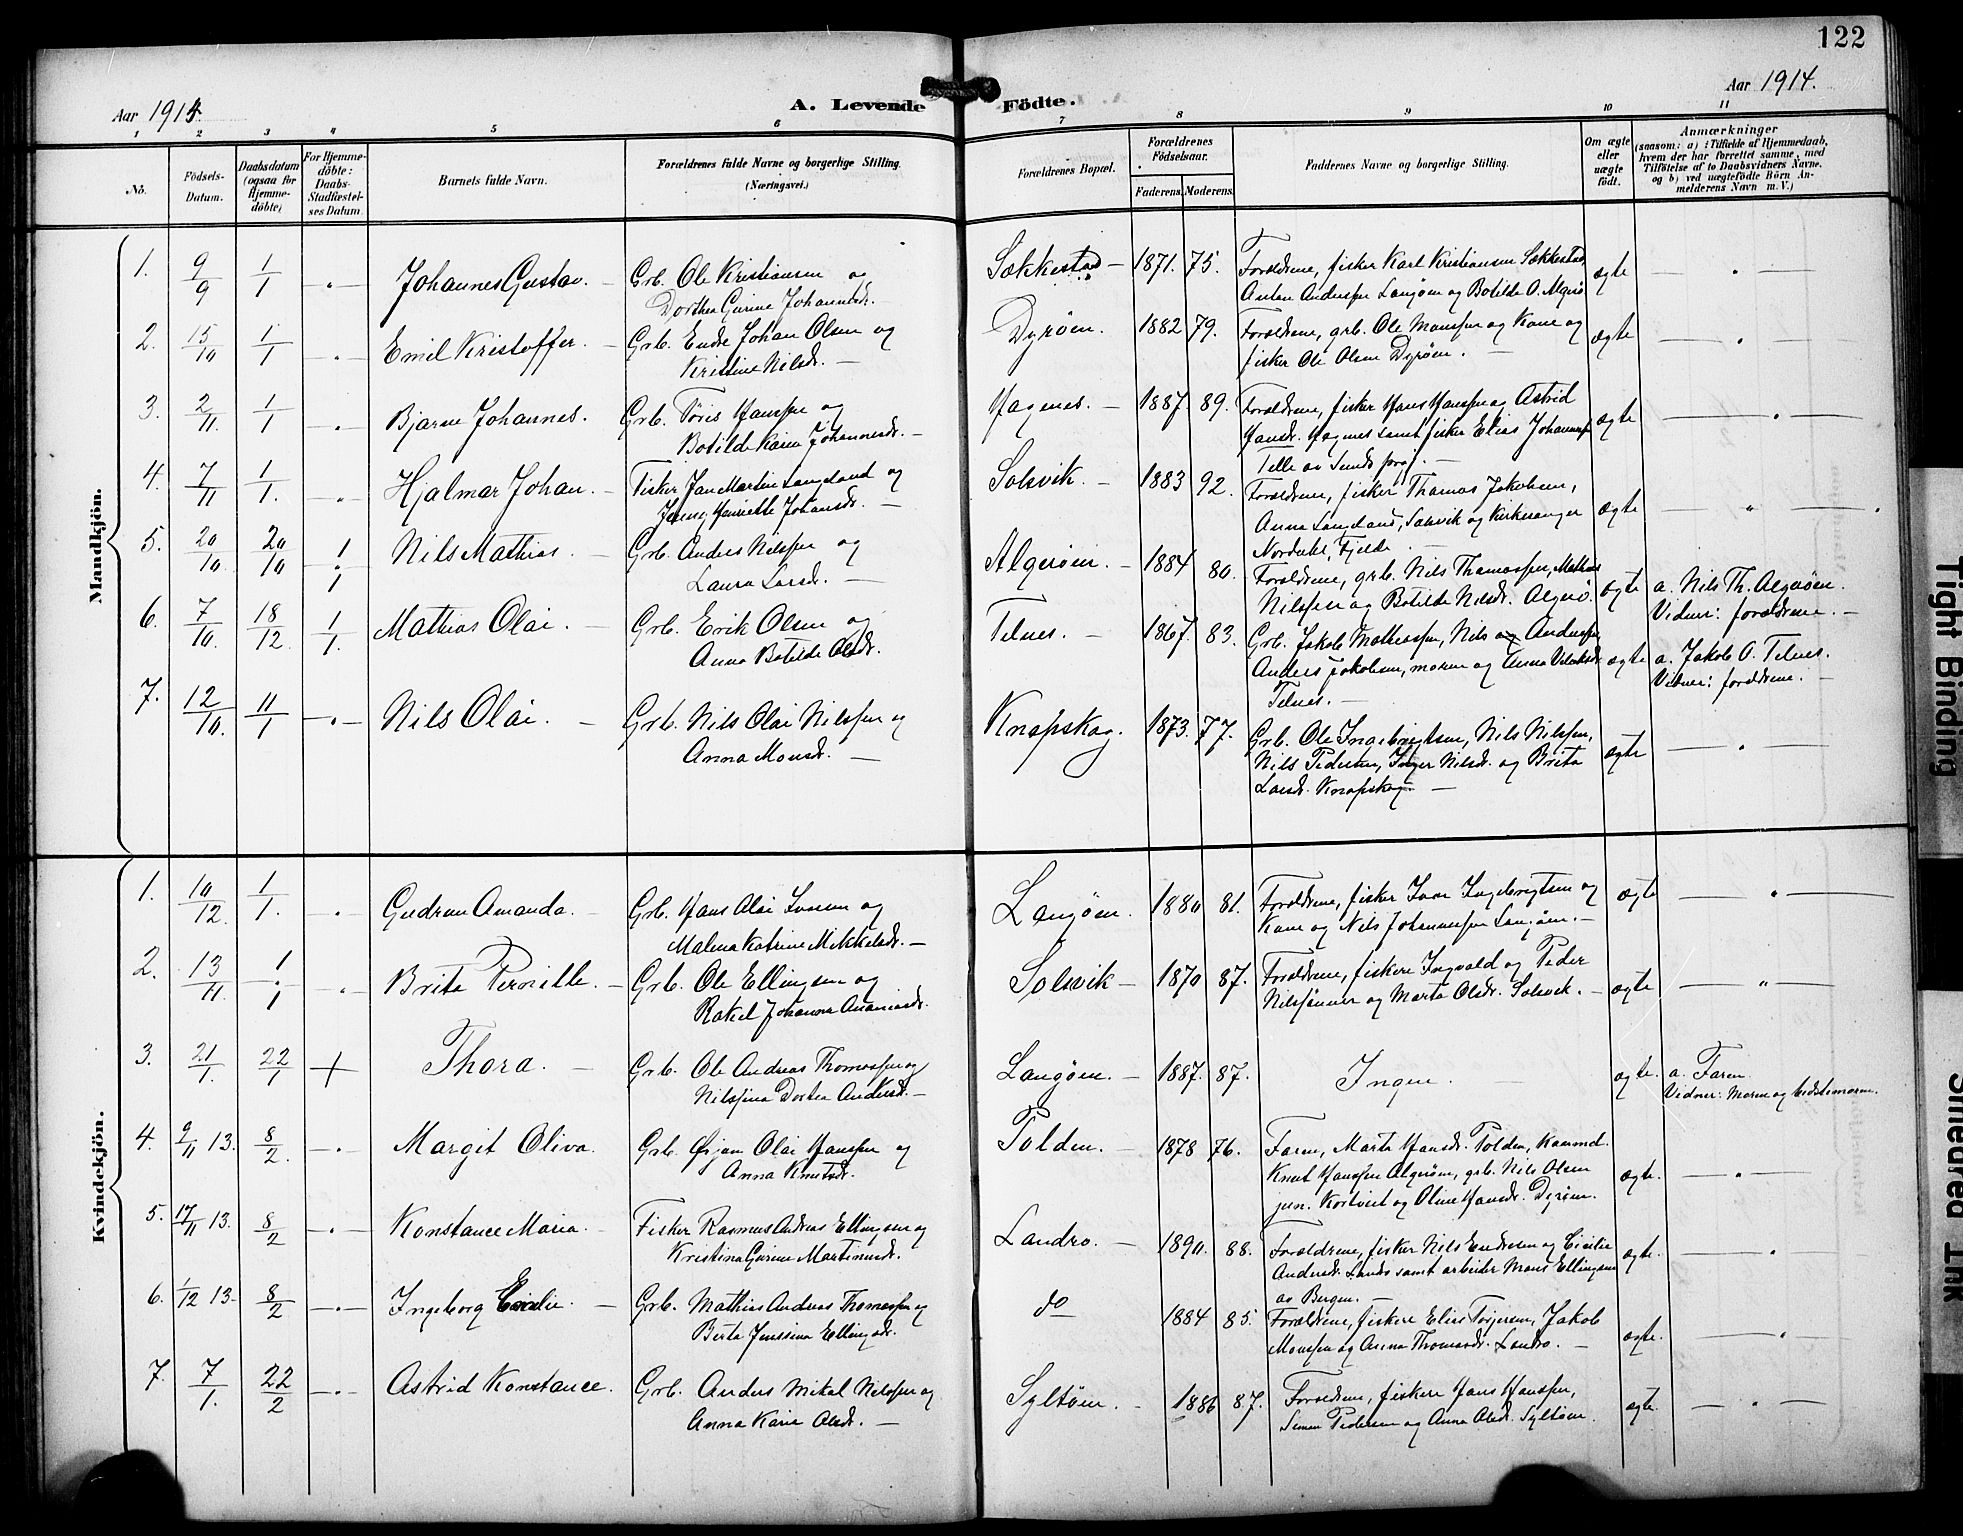 122
Aar 1914.
A. Levende Födte.
Aar 1914.
1 2 3 4 5 6 7 8 9 10 11
No.
Födsels-Datum.
Daabsdatum (ogsaa for Hjemme-döbte)
For Hjemme-döbte: Daabs-Stadfæstel-ses Datum.
Barnets fulde Navn.
Forældrenes fulde Navne og borgerlige Stilling. (Næringsvei.)
Forældrenes Bopæl.
Forældrenes Födselsaar.
Faderens. Moderens.
Faddernes Navne og borgerlige Stilling.
Om ægte eller uægte födt.
Anmærkninger
(saasom: a) i Tilfælde af Hjemmedaab, hvem der har forrettet samme, med Tilföielse af to Daabsvidners Navne, og b) ved uægtefödte Börn Anmelderens Navn m. V.)
Mandkjön.
1. 9/9 1/1 -"- Johannes Gustav. — Grb. Ole Kristiansen og
Dorthea Gurine Johannesdr.
Sækkestad — 1871. 75. Forældrene, fisker Karl Kristiansen Sækkestad,
Anton Anderssen Langøen og Botilde O. Algrø
ægte — " —
2. 15/10 1/1 " Emil Kristoffer. — Grb. Endre Johan Olsen og
Kristine Nilsdr. —
Dyrøen. 1882 79. Forældrene, grb. Ole Monssen og Kone og
fisker Ole Olsen Dyrøen. —
ægte — " —
3. 2/11. 1/1 " Bjarne Johannes. Grb. Toris Hanssen og
Botilde Karine Johannesdr. —
Hagenes. — 1887. 89. Forældrene, fisker Hans Hanssen og Astrid
Hansdr. Hagnes samt fisker Elias Johannessen
Telle av Sunds prgj. —
ægte — " —
4. 7/11 1/1. " Hjalmar Johan. — Fisker Jan Martin Langeland og
Jenny Henriette Johansdr. —
Solsvik. — 1883 92. Forældrene, fisker Thomas Jakobsen,
Anna Langeland, Solsvik og Kirkesanger
Fjelde. —
ægte — " — .
5. 20/10. 20/10 1/1 Nils Mathias. — Grb. Anders Nilssen og
Laura Larsdr. —
Algerøen. — 1884 80. Forældrene, grb. Nils Thomassen, Mathias
Nilssen og Botilde Nilsdr. Algrø.
ægte a. Nils Th. Algrøen.
Vidner: forældrene. —
6. 7/10. 18/12. 1/1. Mathias Olai. — Grb. Erik Olsen og
Anna Botilde Olsdr.
Telnes. — 1867. 83. Grb. Jakob Mathiassen, Nils og Anderssen,
Anders Jakobsen, moren og Anna
Telnes. —
ægte a. Jakob O. Telnes.
Vidner: forældrene. —
7. 12/10. 11/1 -"- Nils Olai. — Grb. Nils Olai Nilssen og
Anna Monsdr. —
Knapskog. 1873. 77. Grb. Ole Ingebrigtsen, Nils Nilssen,
Nils Pedersen, Inger Nilsdr. og Brita
Larsdr. Knapskog. —
ægte — " —
Kvindekjön.
1. 10/12. 1/1. " Gudrun Amanda. — Grb. Hans Olai Iversen og
Malena Katrine Mikkelsdr. —
Langøen. 1880 81. Forældrene, fisker Ivar Ingebrigtsen og
Kone og Nils Johannessen Langøen. —
ægte — " —
2. 13/11. 1/1 -"- Brita Pernille. — Grb. Ole Ellingsen og
Rakel Johanna Ananiasdr.
Solsvik — 1870 87. Forældrene, fiskere Ingvald og Peder
Nilssønner og Marta Olsdr. Solsvik. —
ægte — " —
3. 21/1. 22/1 + Thora. — Grb. Ole Andreas Thomassen og
Nilssina Dortea Andersdr. —
Langøen. — 1887. 87. Ingen. —
ægte. a. Faren
Vidner: Moren og bedstemoren.
4. 9/11 13. 8/2. -"- Margit Oliva. Grb. Ørjan Olai Hanssen og
Anna Knutsdr.
Polden. — 1878 76. Faren, Marta Hansdr. Polden,
Knut Hanssen Algrøen, grb. Nils Olsen
jun. Kortveit og Oline Hansdr. Dyrøen.
ægte. — " —
5. 17/11 13. 8/2 -"- Konstance Maria. Fisker Rasmus Andreas Ellingsen og
Kristina Gurine Martinusdr.
Landro. — 1890. 88. Forældrene, fisker Nils Endresen og Cicilie
Andersdr. Landro samt arbeider Mons Ellingsen
av Bergen. —
ægte. — " —
6. 1/12 13. 8/2 -"- Ingeborg Emilie. — Grb. Mathias Andreas Thomassen og
Berta Jenssina Ellingsdr.
do — 1884 85. Forældrene, fiskere Elias Torjersen, Jakob
Monssen og Anna Thomasdr. Landro. —
ægte. — " —
7. 7/1. 22/2 -"- Astrid Konstance. Grb. Anders Mikal Nilssen og
Anna Karine Olsdr. —
Syltøen. — 1886 87. Forældrene, fiskere Hans Hanssen,
Simon Pedersen og Anna Olsdr. Syltøen.
ægte. — " —
Tight Binding
Smeared Ink